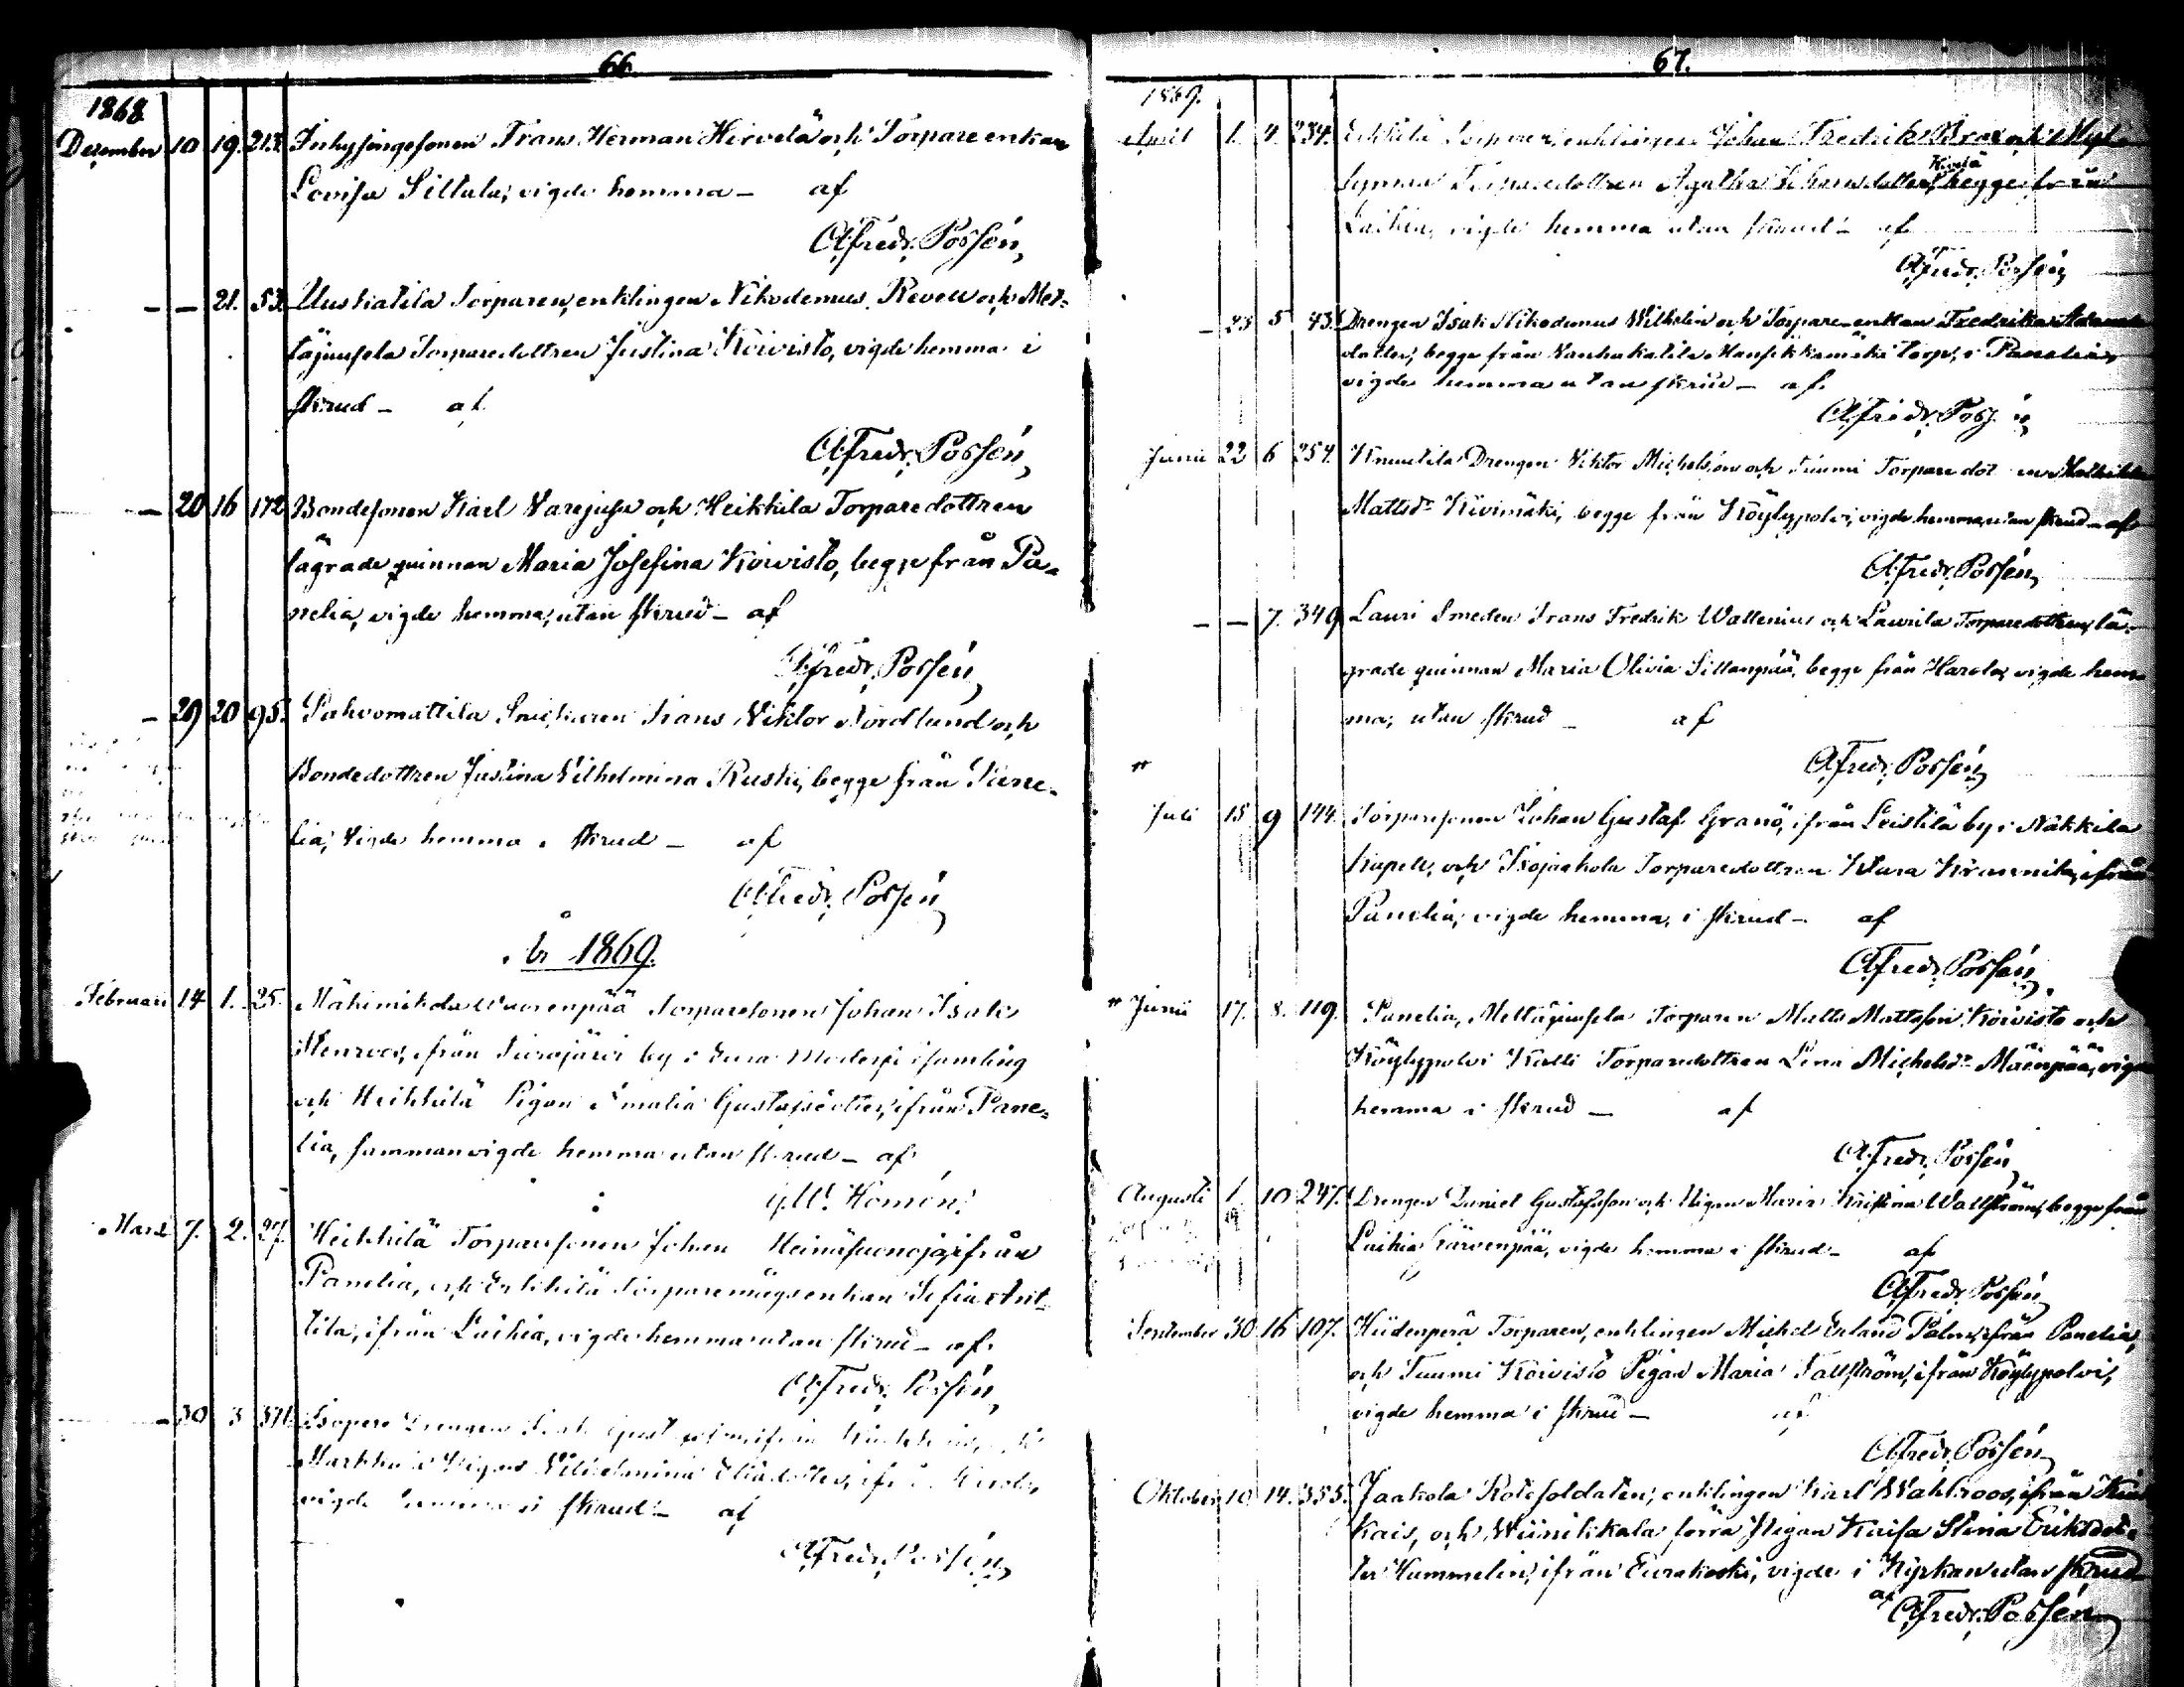 66.
1868
December 10 19. 217. Inhysingesonen Frans Herman Hirvelä och Torpare enkan
Lovisa Sillula, vigde hemma – af
A. Fredr. Possén
– – 21. 53. Uusitatila Torparen, enklingen Nikodemus Revell och Met-
täjuusela Torparedottren Justina Koivisto, vigde hemma i
skrud – af
A. Fredr. Possén
– 20 16 172 Bondesonen Karl Varjusu och Heikkila Torparedottren
lägrade quinnan Maria Josefina Koivisto, begge från Pa-
nelia, vigde hemma, utan skrud – af
A. Fredr. Possén
– 29 20 95. Pahvomattila Snickaren Frans Viktor Nordlund och
Bondedottren Justina Vilhelmina Ruski, begge från Pane-
lia, vigde hemma i skrud – af
A. Fredr. Possén
År 1869.
Februari 14 1. 25. Mäkimikola Vuorenpää Torparesonen Johan Isak
Stenroos, ifrån Turajärvi by i Eura Moderförsamling
och Heikkilä Pigan Amalia Gustafsdotter, ifrån Pane-
lia, sammanvigde hemma utan skrud – af
G. W. Homén.
Mars 7. 2. 27. Heikkilä Torparesonen Johan Heinäsuonoja, ifrån
Panelia, och Erkkilä Torparemågsenkan Sofia Ant-
tila, ifrån Laihia, vigde hemma utan skrud – af
A. Fredr. Possén
– 30 3 371. Isopere Drengen
Markku Pigan Vilhelmina
vigde hemma i skrud – af
A. Fredr. Possén
67.
1869.
April 1. 4. 234. Erkkilä Torparen, enklingen Johan Fredrik Brax och
Kivelä
Torparedottren Agatha Johansdotter, begge från
Laihia, vigde hemma utan skrud – af
A. Fredr. Possén
– 23 5 43. Drengen Isak Nikodemus Wilhelm och Torpare-enkan Fredrika Adams-
dotter, begge från Vanhakatila Hansikkamäki torp, i Panelia,
vigde hemma utan skrud – af
A. Fredr. Possén
Junii 22 6 254. Knuutila Drengen Viktor Michelson och Tuumi Torpare
Mattsdr Kivimäki, begge från Köylypolvi, vigde hemma, utan skrud – af
A. Fredr. Possén
– – 7. 349 Lauri Smeden Frans Fredrik Wallenius och Laurila Torparedottren, lä-
grade quinnan Maria Olivia Sillanpää, begge från Harola, vigde hem-
ma, utan skrud – af
A. Fredr. Possén
Juli 15 9 144. Torparesonen Johan Gustaf Granö, ifrån Leistilä by i Nakkila
Kapell, och Isojaakola Torparedottren Klara Krannila, ifrån
Panelia, vigde hemma, i skrud – af
A. Fredr. Possén
Junii 17. 8. 119. Panelia, Mettäjuusela Torparen Matts Mattsson Koivisto och
Köylypolvi Kulli Torparedottren Lena Michelsdr Mäenpää, vigde
hemma i skrud – af
A. Fredr. Possén
Augusti 1. 10 247. Drengen Daniel Gustafsson och Pigan Maria Kristina Wallström, begge från
Laihia Järvenpää, vigde hemma i skrud – af
A. Fredr. Possén
September 30 16 107. Hiidenperä Torparen, enklingen Michel Erland Palin, ifrån Panelia,
och Tuumi Koivisto Pigan Maria Fallström, ifrån Köylypolvi,
vigde hemma i skrud – af
A. Fredr. Possén
Oktober 10 14. 355. Jaakola Rotesoldaten, enklingen Karl Wahlroos, ifrån Kiu-
kais, och Wiinikkala förra Pigan Kaisa Stina Eriksdot-
ter Hummelin, ifrån Eurakoski, vigde i Kyrkan utan skrud
af
A. Fredr. Possén